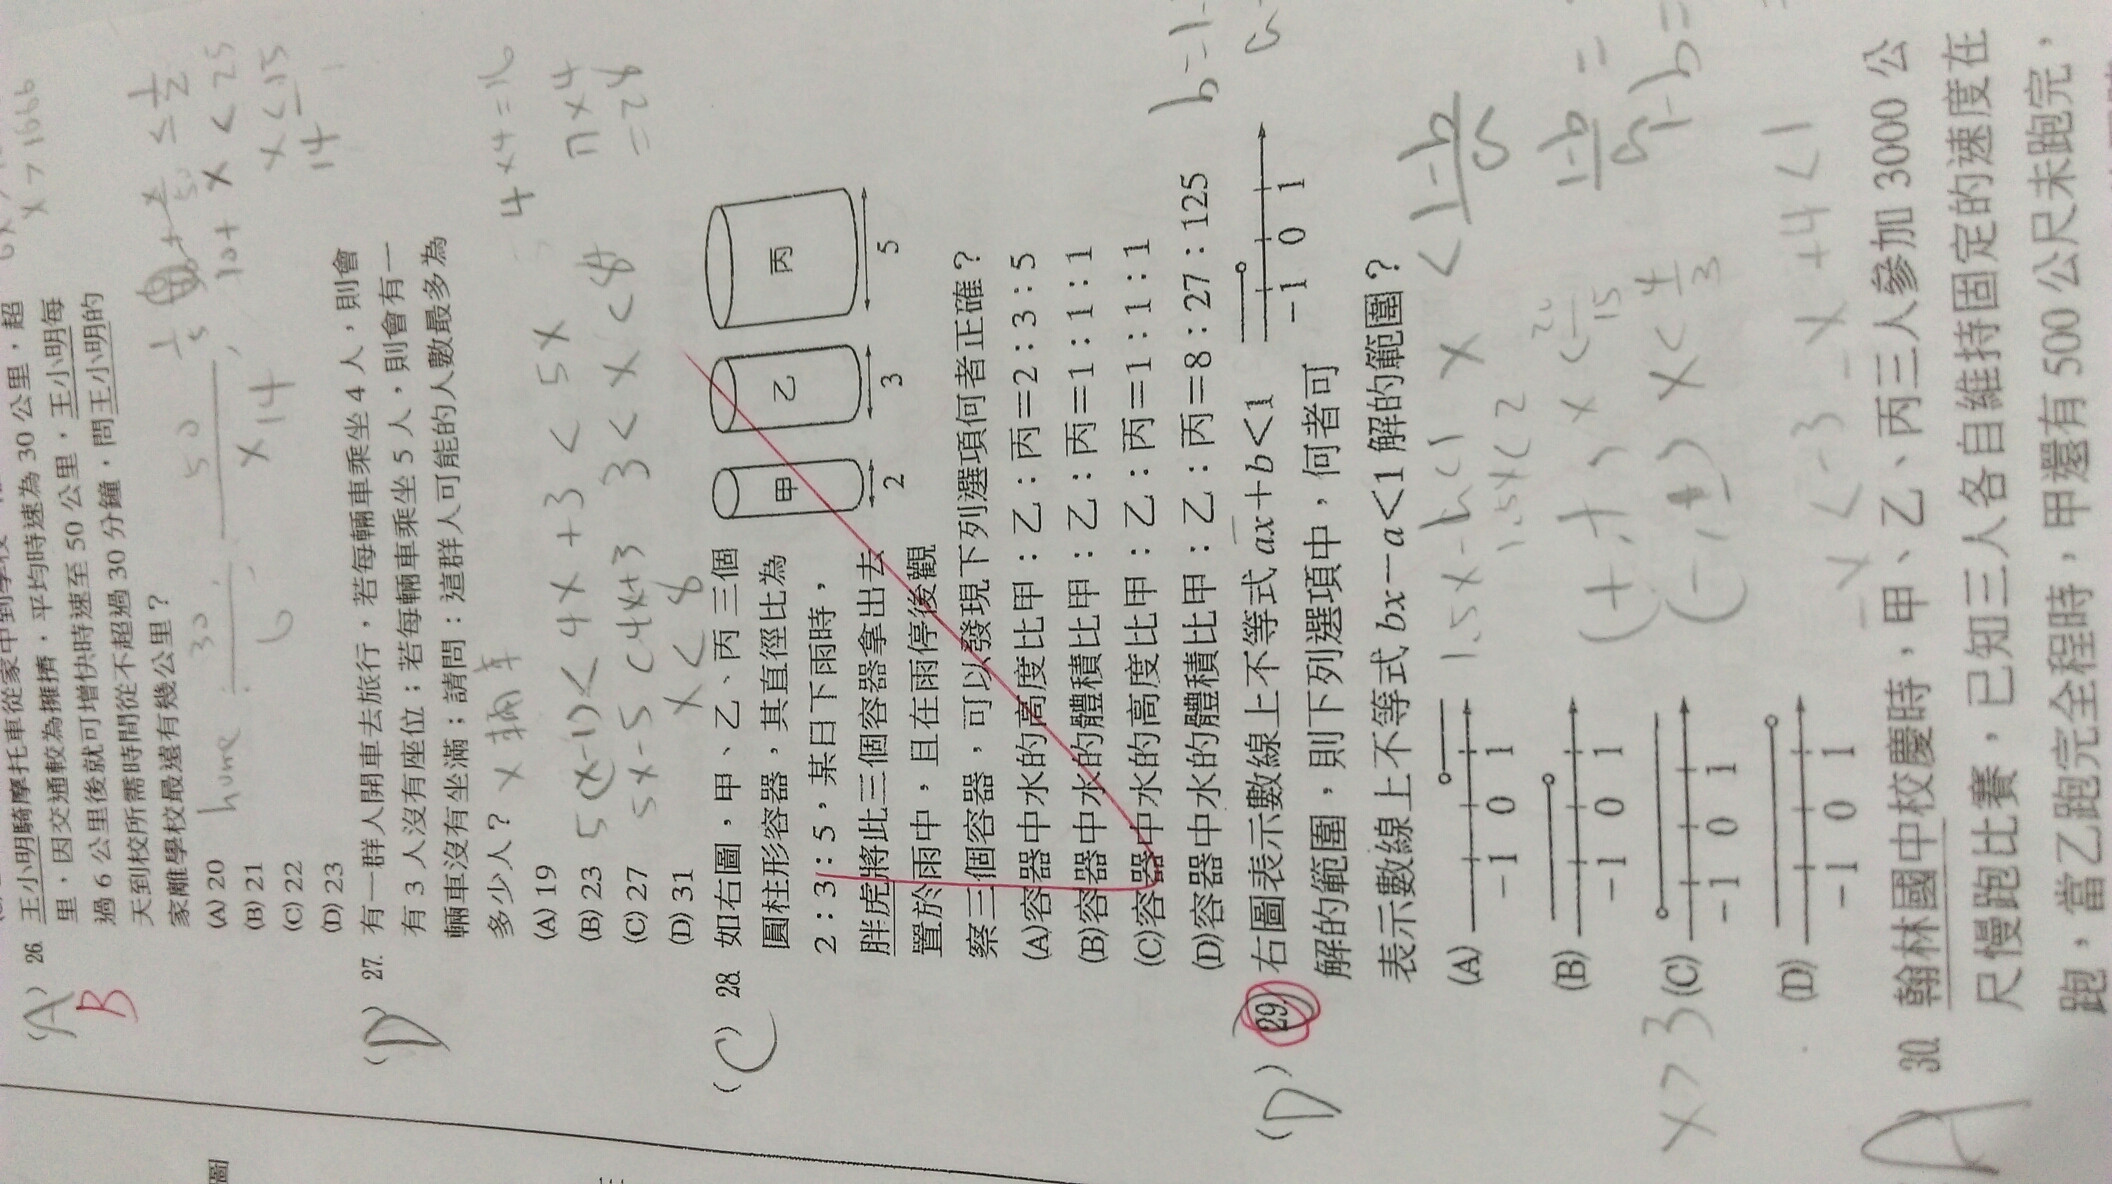 6x
x > 1666
(A) 26. 王小明騎摩托車從家中到學校
里,因交通較為擁擠,平均時速為 30 公里,超
過 6 公里後就可增快時速至 50 公里,王小明每
天到校所需時間從不超過 30 分鐘,問王小明的
家離學校最遠有幾公里?
B
(A) 20
(B) 21
(C) 22
(D) 23
home
30
50
6
x
14
≤ 1/2
10+x < 25
x ≤ 15
14
(D) 27. 有一群人開車去旅行,若每輛車乘坐 4 人,則會
有 3 人沒有座位;若每輛車乘坐 5 人,則會有一
輛車沒有坐滿;請問:這群人可能的人數最多為
多少人?
x 輛車
4×4=16
(A) 19
(B) 23
(C) 27
(D) 31
5(x-1) < 4x+3 < 5x
5x-5 < 4x+3 3 < x < 8
x < 8
7×4
=28
(C) 28. 如右圖,甲、乙、丙三個
圓柱形容器,其直徑比為
2:3:5,某日下雨時,
胖虎將此三個容器拿出去
置於雨中,且在雨停後觀
察三個容器,可以發現下列選項何者正確?
甲
乙
丙
2
3
5
(A)容器中水的高度比甲:乙:丙=2:3:5
(B)容器中水的體積比甲:乙:丙=1:1:1
(C)容器中水的高度比甲:乙:丙=1:1:1
(D)容器中水的體積比甲:乙:丙=8:27:125
(D) 29. 右圖表示數線上不等式 ax+b<1
解的範圍,則下列選項中,何者可
表示數線上不等式 bx-a<1 解的範圍?
-1 0 1
(A)
-1 0 1
(B)
-1 0 1
(C)
-1 0 1
(D)
-1 0 1
x < (1-b)/a
1.5x < 2
x < 20/15
x < 4/3
-x+4<1
-x<-3
x>3
A 30. 翰林國中校慶時,甲、乙、丙三人參加 3000 公
尺慢跑比賽,已知三人各自維持固定的速度在
跑,當乙跑完全程時,甲還有 500 公尺未跑完,
圖